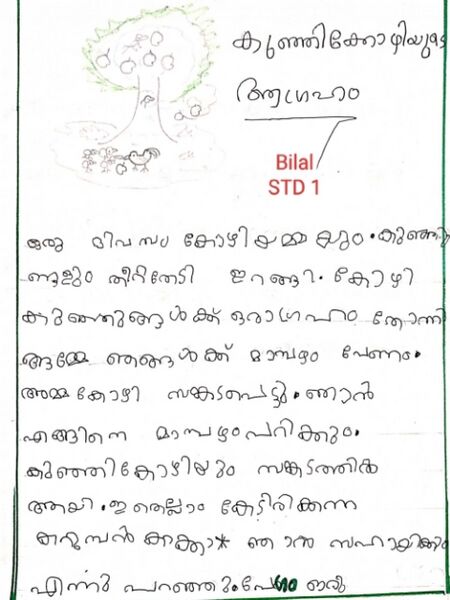 കുഞ്ഞിക്കോഴിയുടെ
ആഗ്രഹം
Bilal
STD 1
ഒരു ദിവസം കോഴിയമ്മയും. കുഞ്ഞു
ങ്ങളും തീറ്റതേടി ഇറങ്ങി. കോഴി
കുഞ്ഞുങ്ങൾക്ക് ഒരാഗ്രഹം തോന്നി
അമ്മേ ഞങ്ങൾക്ക് മാമ്പഴം വേണം.
അമ്മകോഴി സങ്കടപെട്ടു. ഞാൻ
എങ്ങിനെ മാമ്പഴംപറിക്കും.
കുഞ്ഞികോഴിയും സങ്കടത്തിൽ
ആയി. ഇതെല്ലാം കേട്ടിരിക്കുന്ന
കുറുമ്പൻ കാക്ക ഞാൻ സഹായിക്കും
എന്നു പറഞ്ഞു ഒരു